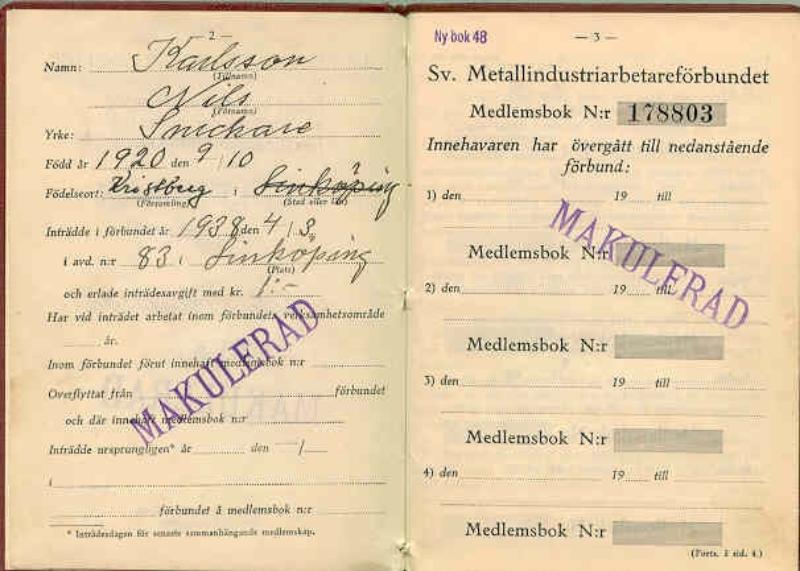 — 2 —
Namn: Karlsson
(Tillnamn)
Nils
(Förnamn)
Yrke: Snickare
Född år 1920 den 9/10
Födelseort: Kristberg i Linköping
(Församling) (Stad eller län)
Inträdde i förbundet år 1938 den 4/3
i avd. n:r 83 i Linköping
(Plats)
och erlade inträdesavgift med kr. 1:-
Har vid inträdet arbetat inom förbundets verksamhetsområde
år.
Inom förbundet förut innehaft medlemsbok n:r
Överflyttat från förbundet
och där innehaft medlemsbok n:r
Inträdde ursprungligen* år den /
i
förbundet å medlemsbok n:r
* Inträdesdagen för senaste sammanhängande medlemskap.
MAKULERAD
Ny bok 48
— 3 —
Sv. Metallindustriarbetareförbundet
Medlemsbok N:r 178803
Innehavaren har övergått till nedanstående
förbund:
1) den 19 till
Medlemsbok N:r
2) den 19 till
Medlemsbok N:r
3) den 19 till
Medlemsbok N:r
4) den 19 till
Medlemsbok N:r
(Forts. å sid. 4.)
MAKULERAD